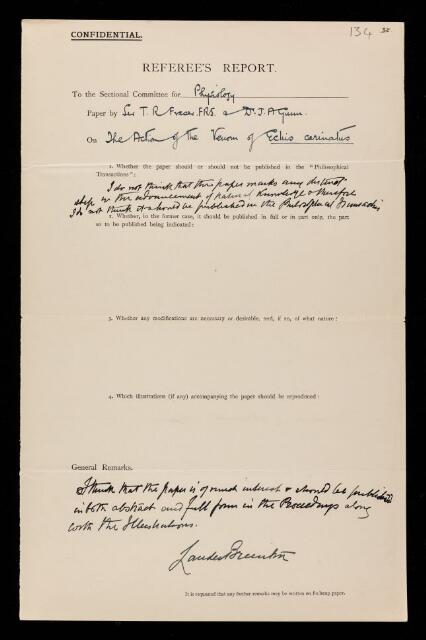 CONFIDENTIAL.
134
REFEREE'S REPORT.
To the Sectional Committee for Physiology
Paper by Sir T. R Fraser, F.R.S. & Dr. J. A Gunn.
On The Action of the Venom of Echis carinatus
1. Whether the paper should or should not be published in the "Philosophical
Transactions":
I do not think that this paper marks any distinct
step in the advancement of natural Knowledge & therefore
I do not think it should be published in the Philosophical Transactions
2. Whether, in the former case, it should be published in full or in part only, the part
so to be published being indicated:
3. Whether any modifications are necessary or desirable, and, if so, of what nature:
4. Which illustrations (if any) accompanying the paper should be reproduced:
General Remarks.
I think that the paper is of much interest & should be published
in both abstract and full form in the Proceedings along
with the Illustrations.
Lauder Brunton
It is requested that any further remarks may be written on foolscap paper.